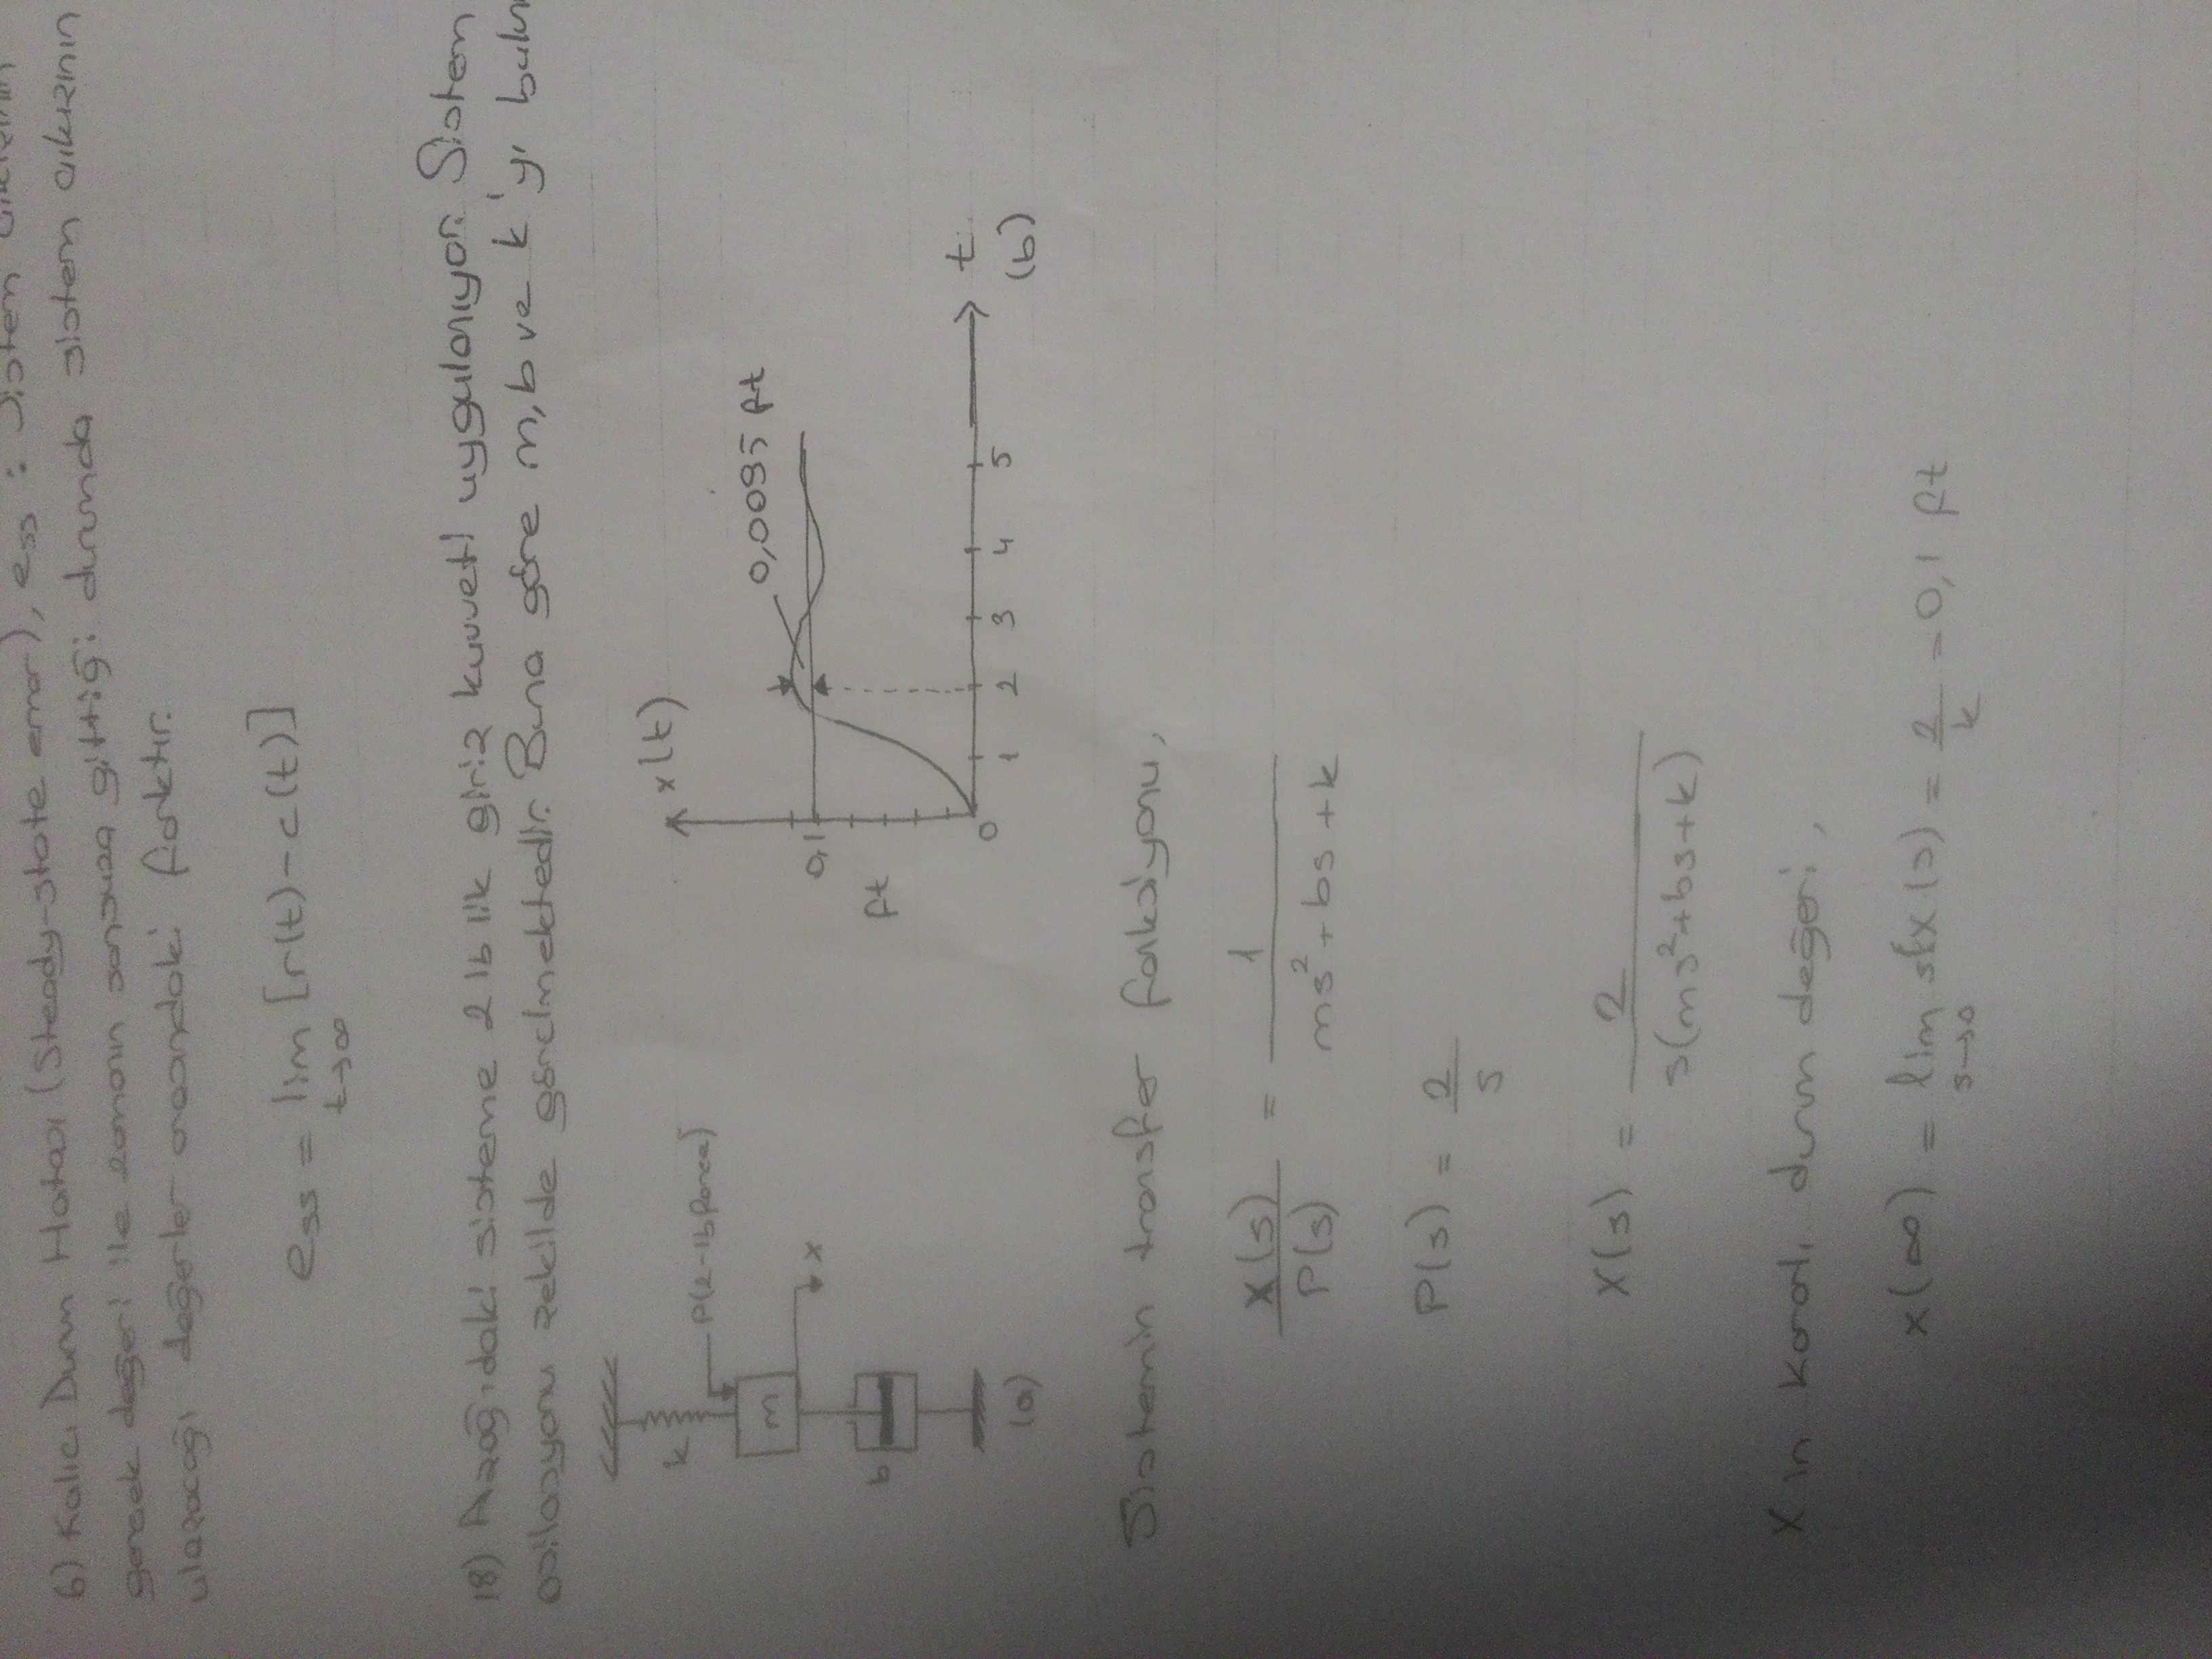 6) Kalıcı Durum Hatası (Steady-state error), ess : Sistem çıkışının
gerçek değeri ile zamanın sonsuza gittiği durumda sistem çıkışının
ulaşacağı değerler arasındaki farktır.
ess = lim [r(t)-c(t)]
t→∞
18) Aşağıdaki sisteme 2 lb lik giriş kuvveti uygulanıyor. Sistem
osilasyonu şekilde görülmektedir. Buna göre m, b ve k'yı
k
P(2-lb force)
m
x
b
(a)
x(t)
0,0095 ft
0,1
ft
0 1 2 3 4 5 t
(b)
Sistemin transfer fonksiyonu,
X(s)/P(s) = 1/(ms²+bs+k)
P(s) = 2/s
X(s) = 2/s(ms²+bs+k)
X in kararlı durum değeri,
x(∞) = lim sX(s) = 2/k = 0,1 ft
s→0